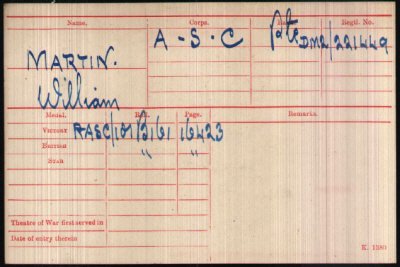 Name. Corps. Rank. Regtl. No.
MARTIN. A-S.C Pte DM2/221449
William
Medal. Roll. Page. Remarks.
VICTORY RASC/101B161 16423
BRITISH " "
STAR
Theatre of War first served in
Date of entry therein
K. 1380